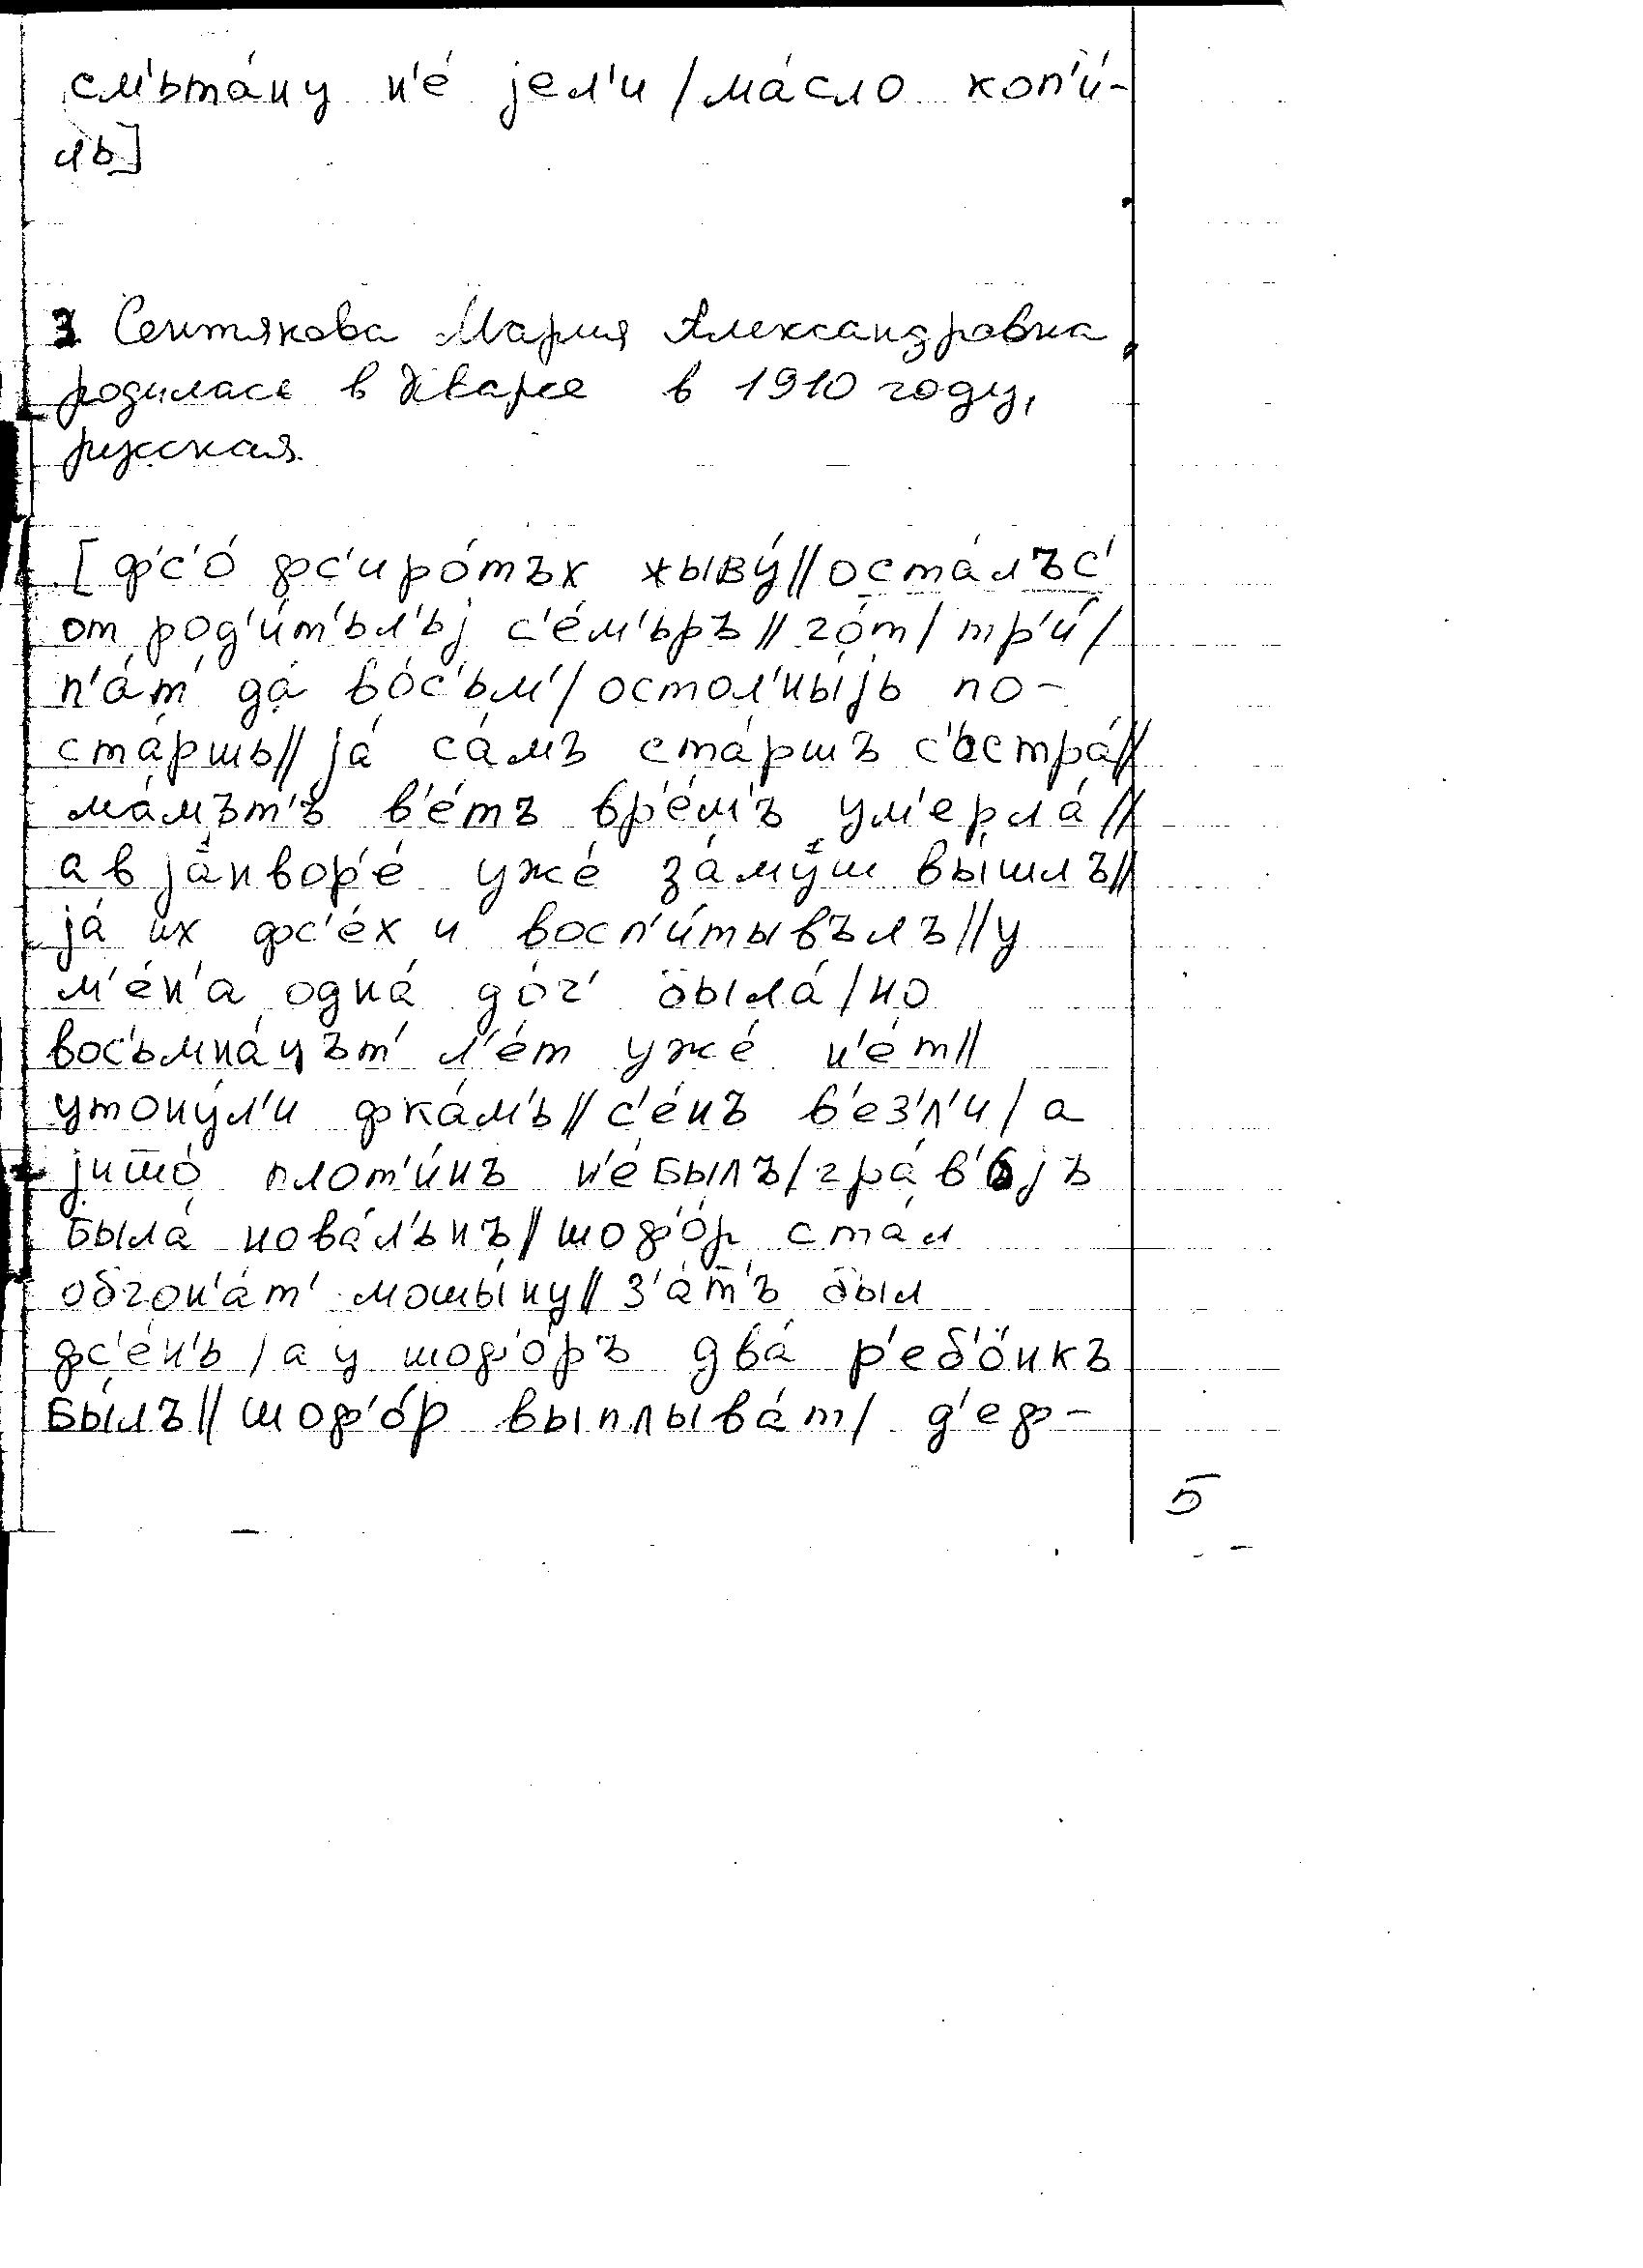 см'ьта́ну н'е́ јел'и / ма́сло коп'и́-
ль]
3 Сентякова Мария Александровна
родилась в Кварсе в 1910 году,
русская.
[ф'с'о́ фс'иро́тъх жыву́ // оста́лъс'
от род'и́т'ьл'ьј с'е́м'ьръ // го́т / тр'и́ /
п'а́т' да́ во́с'ьм' / остол'ны́јь по-
ста́ршь // ја́ са́мъ ста́ршъ с'остра́ //
ма́мът'ъ в'е́тъ вр'е́м'ъ ум'ерла́ //
а в јанвор'е́ уже́ за́муш вы́шлъ //
ја́ их фс'е́х и восп'и́тывълъ // у
м'е́н'а одна́ до́ч' была́ / но
вос'ьмна́цът' л'е́т уже́ н'е́т //
утону́л'и фка́м'ь // с'е́нъ в'ез'л'и / а
јишо́ плот'и́нъ н'е́былъ / гра́в'ьјъ
была́ нова́л'ьнъ // шоф'о́р ста́л
обгон'а́т' мошы́ну // з'а́т'ъ был
фс'е́н'ь / а у шоф'о́ръ два́ р'еб'о́нкъ
бы́лъ // шоф'о́р выплыва́т / д'еф-
5